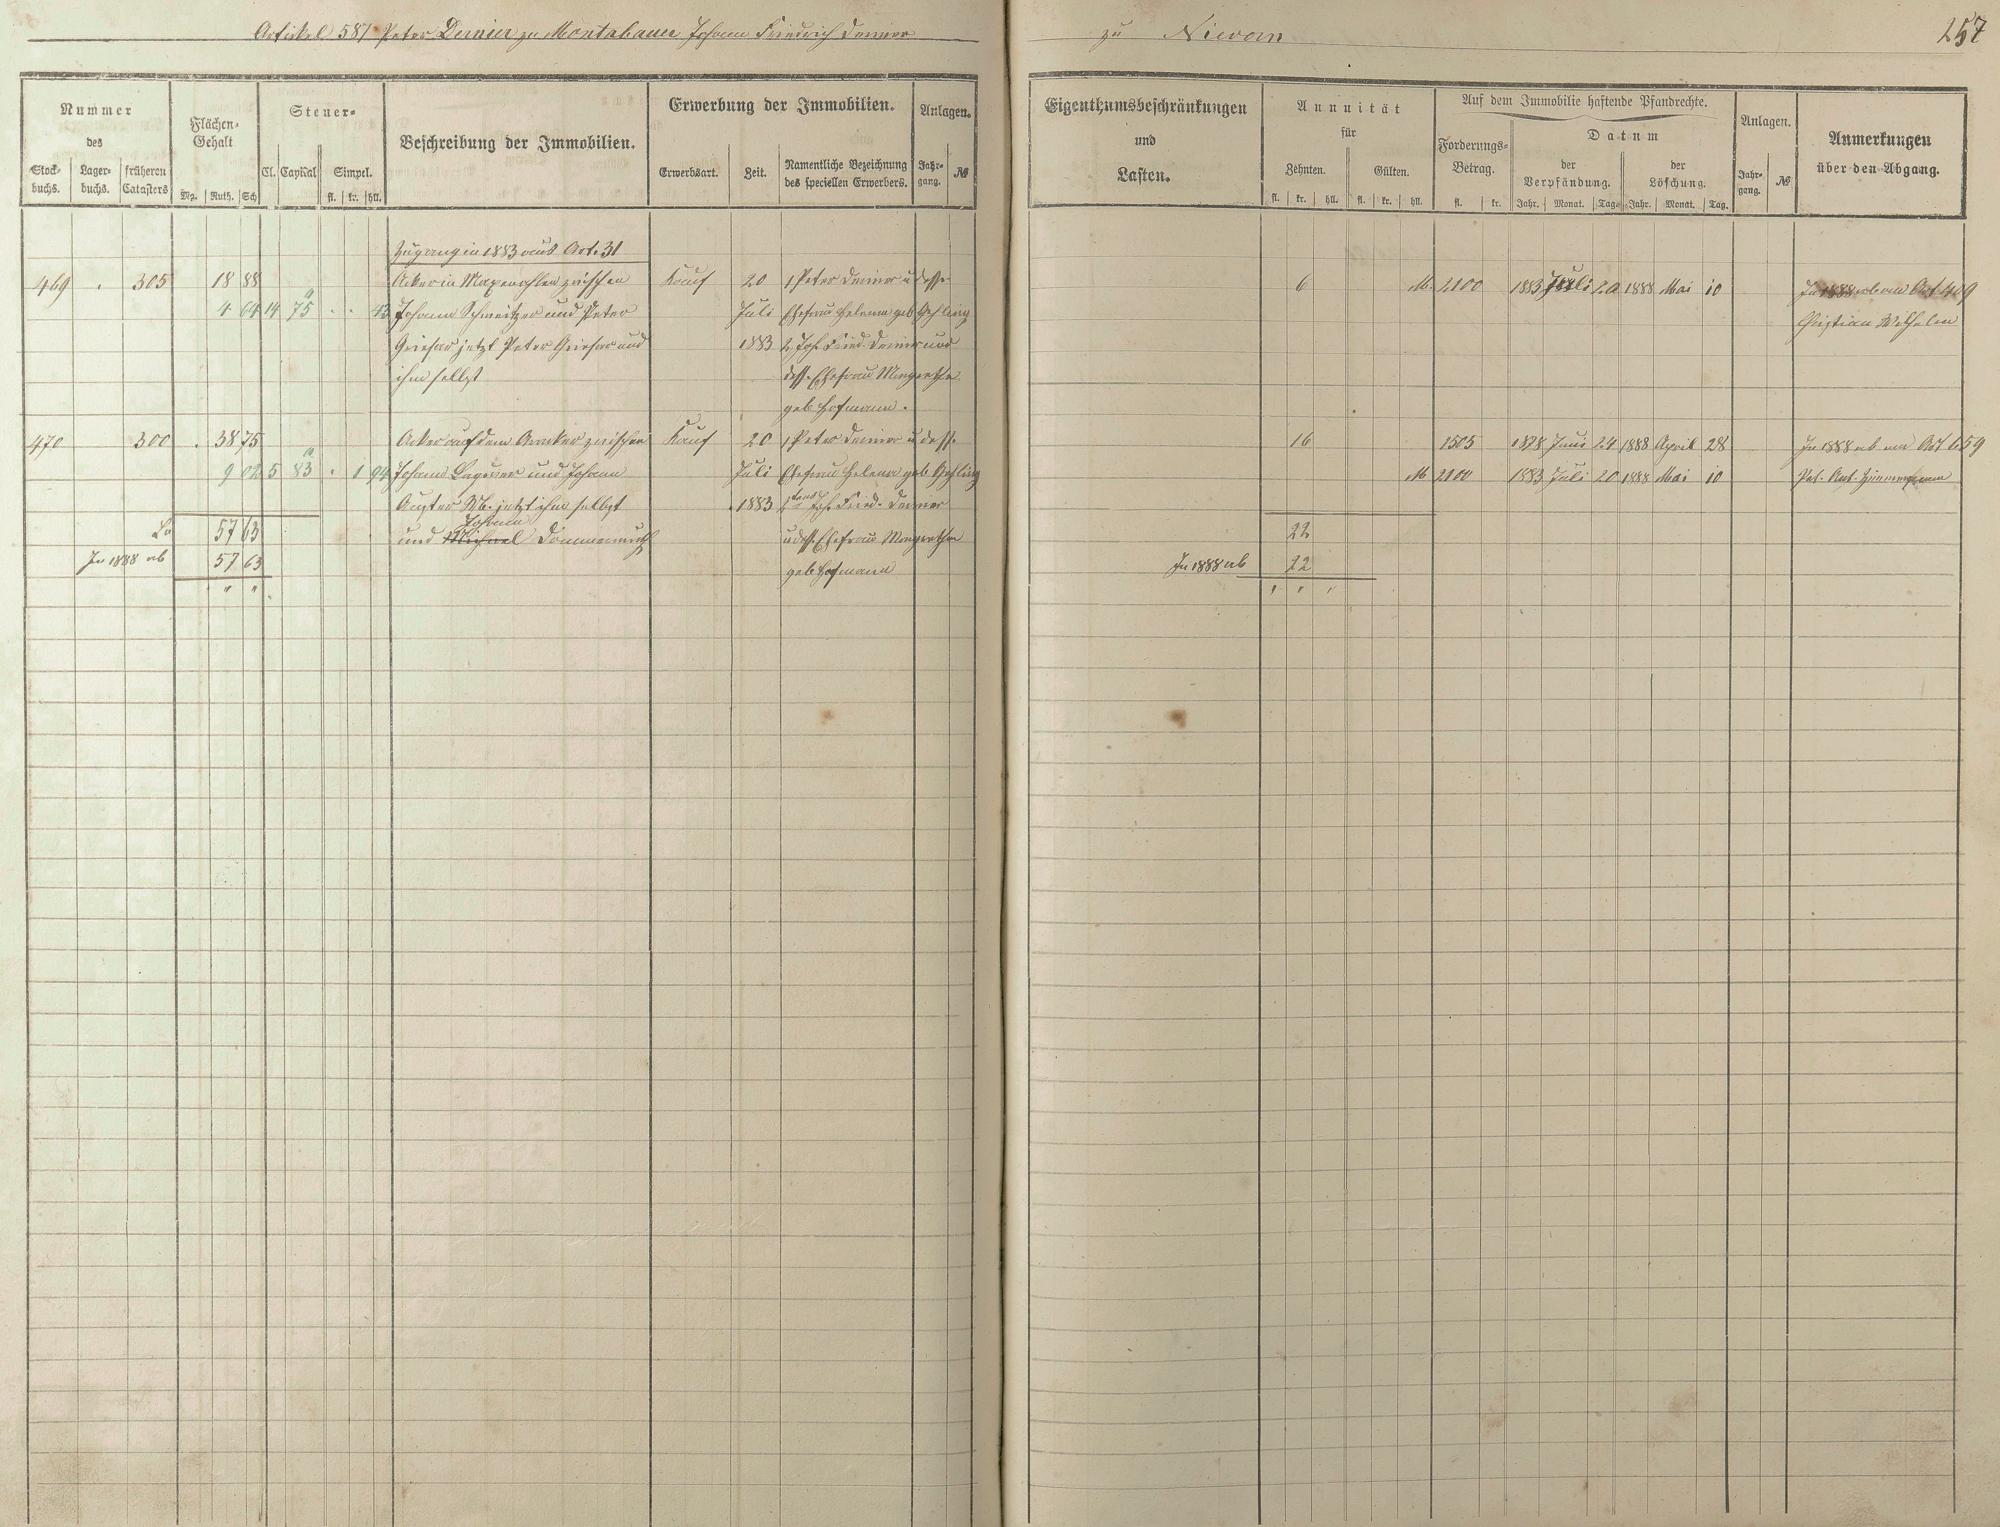 Artikel 587 Peter Demier zu Montabaur Johann Friedrich Demier
zu
257
Nummer
des
Stock-buchs.
Lager-buchs.
früheren Catasters
Flächen-Gehalt
Mg. Ruth. Sch
Steuer-
Cl. Capital Simpel.
fl. kr. hll.
Beschreibung der Immobilien.
Erwerbung der Immobilien.
Erwerbsart. Zeit.
Namentliche Bezeichnung des speciellen Erwerbers.
Anlagen.
Jahr-gang. №
Eigenthumsbeschränkungen
und
Lasten.
Annuität
für
Zehnten. Gülten.
fl. kr. hll. fl. kr. hll.
Auf dem Immobilie haftende Pfandrechte.
Forderungs-Betrag.
fl. kr.
Datum
der Verpfändung. der Löschung.
Jahr. Monat. Tag. Jahr. Monat. Tag.
Anlagen.
Jahr-gang. №
Anmerkungen
über den Abgang.
Zugang in 1883 aus Art. 31
469 305 18 88 Acker in zwischen Kauf 20 1, Peter Demier u dess. 6 M. 2100 1883 Juli 20 1888 Mai 10 In 1888 ab an Art 409
4 64 14 75 43 Johann Schweitzer und Peter Juli Ehefrau Helena geb Christian Wilhelm
Griesar jetzt Peter Griesar und 1883 2, Joh. Fried. Demier und
ihm selbst dess. Ehefrau Margaretha
geb. Hofmann.
470 300 38 75 Acker auf dem zwischen Kauf 20 1, Peter Demier u dess. 16 2505 1878 Juni 24 1888 April 28 In 1888 ab an Art 659
9 02 5 83 1 94 Johann und Johann Juli Ehefrau Helena geb M 2100 1883 Juli 20 1888 Mai 10 Pet. Ant. Zimmermann
jetzt ihm selbst 1883 Joh. Fried. Demier
57 63 Johann
und Michael u dess. Ehefrau Margaretha 22
In 1888 ab 57 63 geb Hofmann In 1888 ab 22